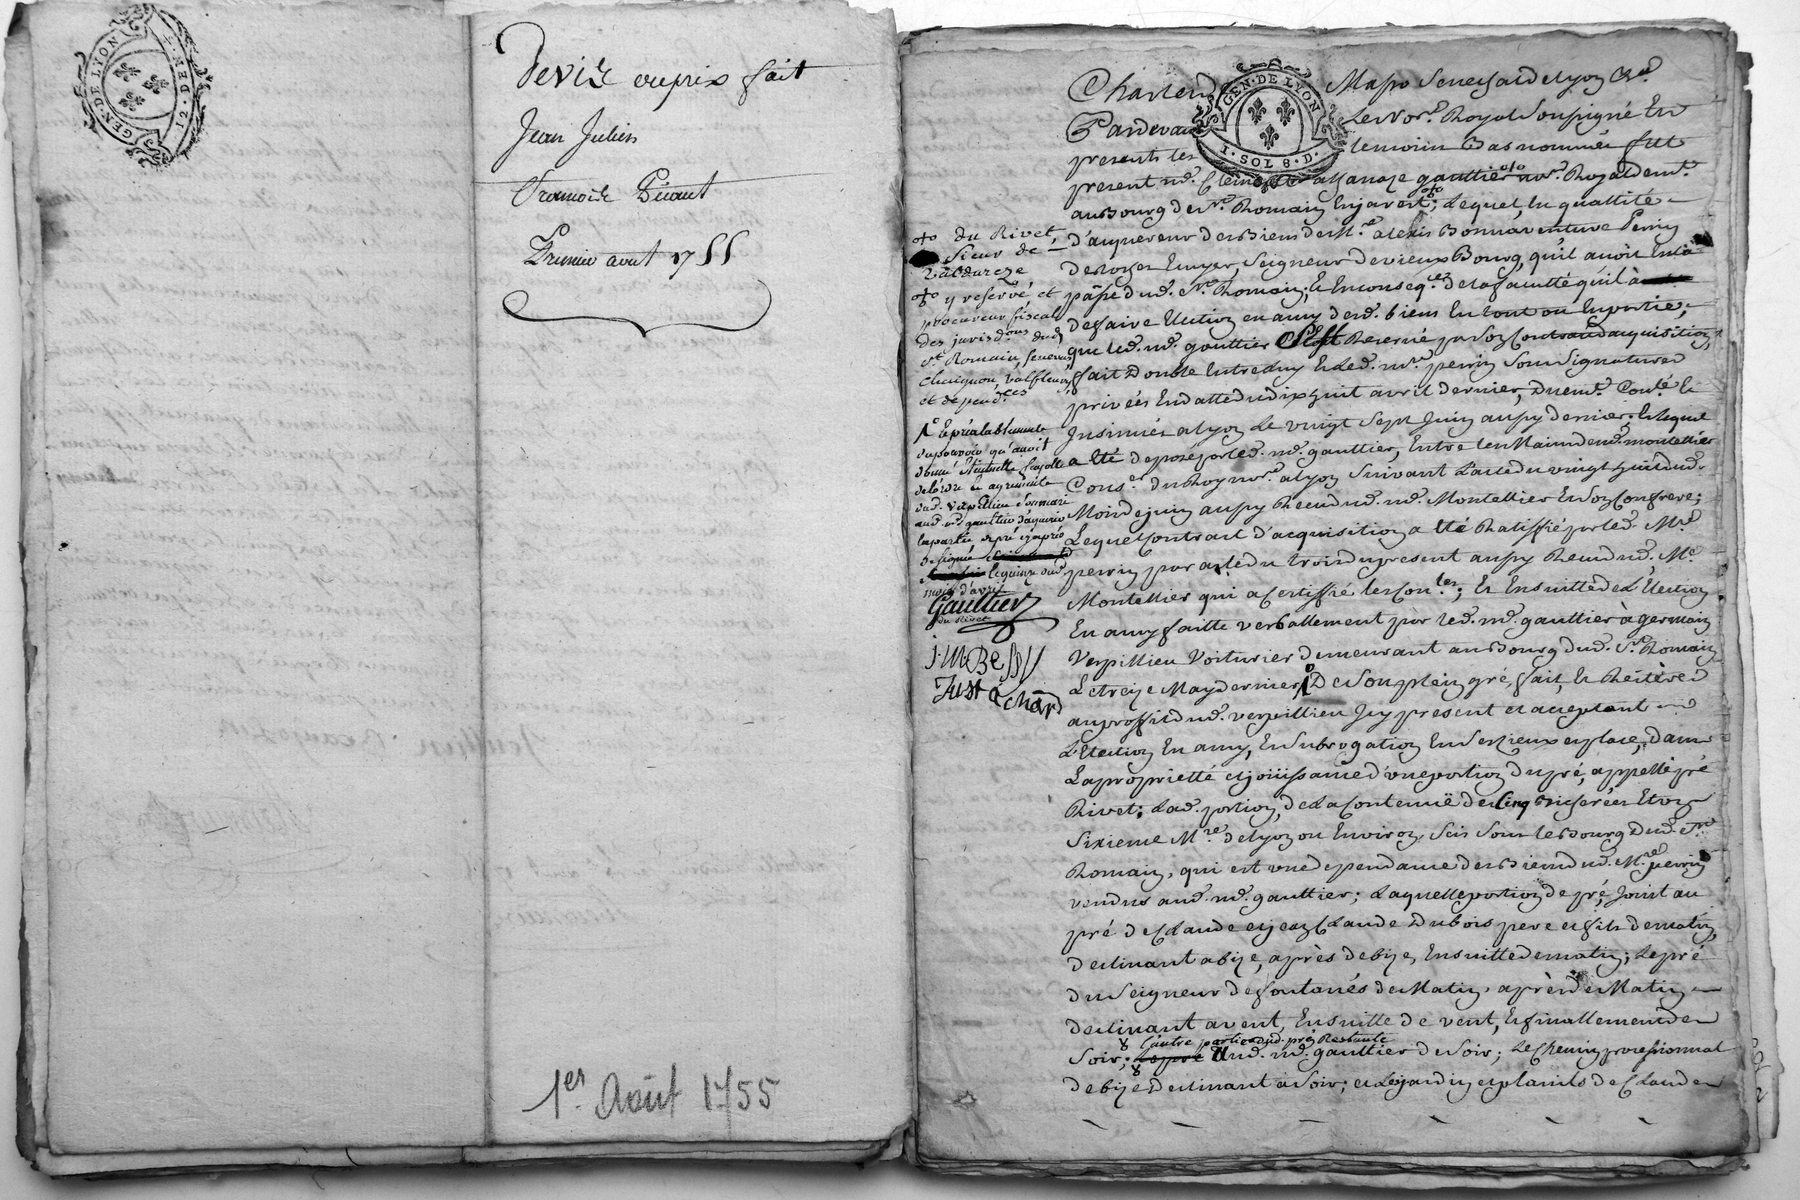 GEN·DE LYON
Devis ou prix fait
Jean Julien
François Picaut
Premier aout 1755
1er Août 1755
GEN·DE LYON
I·SOL 8·D·
Pardevant Le nore. Royal Soussigné En
presents les temoins Bas nommés fut
present me. gauttier nore. Royal demt.
au Bourg de St. Romain En jarest; Lequel En quallitté
d'aquereur des Biens de Mre. alexis Bonnaventure Perrin
Ecuyer, Seigneur de vieux Bourg, qu'il avoit En la
pâsse dud. St. Romain; & En conseqce. de la faculté qu'il à
de faire Election en amy desd. biens En tout ou En partie,
que led. me. gauttier s'est Reservé par son Contrat d'acquisition
fait Double Entre luy & led. mre. perrin sous signatures
privées En datte du dix huit avril dernier, Duemt. Conlé. &
Insinués a Lyon Le vingt Sept Juin aussy dernier; & lequel
a Eté deposé par led. me. gauttier, Entre les Mains de me. montellier
Conser. du Roy nore. a Lyon Suivant L'acte du vingt huit dud.
Mois de juin aussy Receu dud. me. Montellier & Son Confrere;
Lequel Contrat d'acquisition a Eté Ratiffié par led. Mre.
perrin par acte du trois du present aussy Receu dud. Me.
Montellier qui a Certiffié les Con.les; & En suitte de L'Election
En amy faitte verballement par led. me. gauttier à germain
Verpillieu Voiturier demeurant au Bourg dud. St. Romain
Le treize May dernier, De Son plein gré, fait, & Reitéré
au proffit dud. verpillieu Icy present et acceptant
L'Election En amy, En Subrogation En Ses lieux et place, dans
La proprietté et joüissance d'une portion du pré, appellé pré
Rivet; Lad. portion, de La Contenuë de Cinq Bicherées Et un
Sixieme Mre. de Lyon ou Environ, Scis Sous le Bourg dud. St.
Romain, qui est une dependance des Biens dud. Mre. perrin
vendus aud. me. gauttier; Laquelle portion de pré, Joint au
pré de Claude et jean Claude Dubois pere et fils de matin,
declinant a bize, après de bize, En suitte de matin; Le pré
du Seigneur de fontanés de Matin, après de Matin
declinant a vent, En suitte de vent, & finallement de
L'autre partie dud. pré Restante
Soir; aud. me. gauttier de Soir; Le Chemin processionnal
de bize declinant à Soir; et Le jardin et plants de Claude
du Rivet,
Sieur de
y reservé, et
procureur fiscal
des jurisdons. dud.
St. Romain,
et dépendces
le quinze dud.
mois d'avril
Gaultier
du Rivet